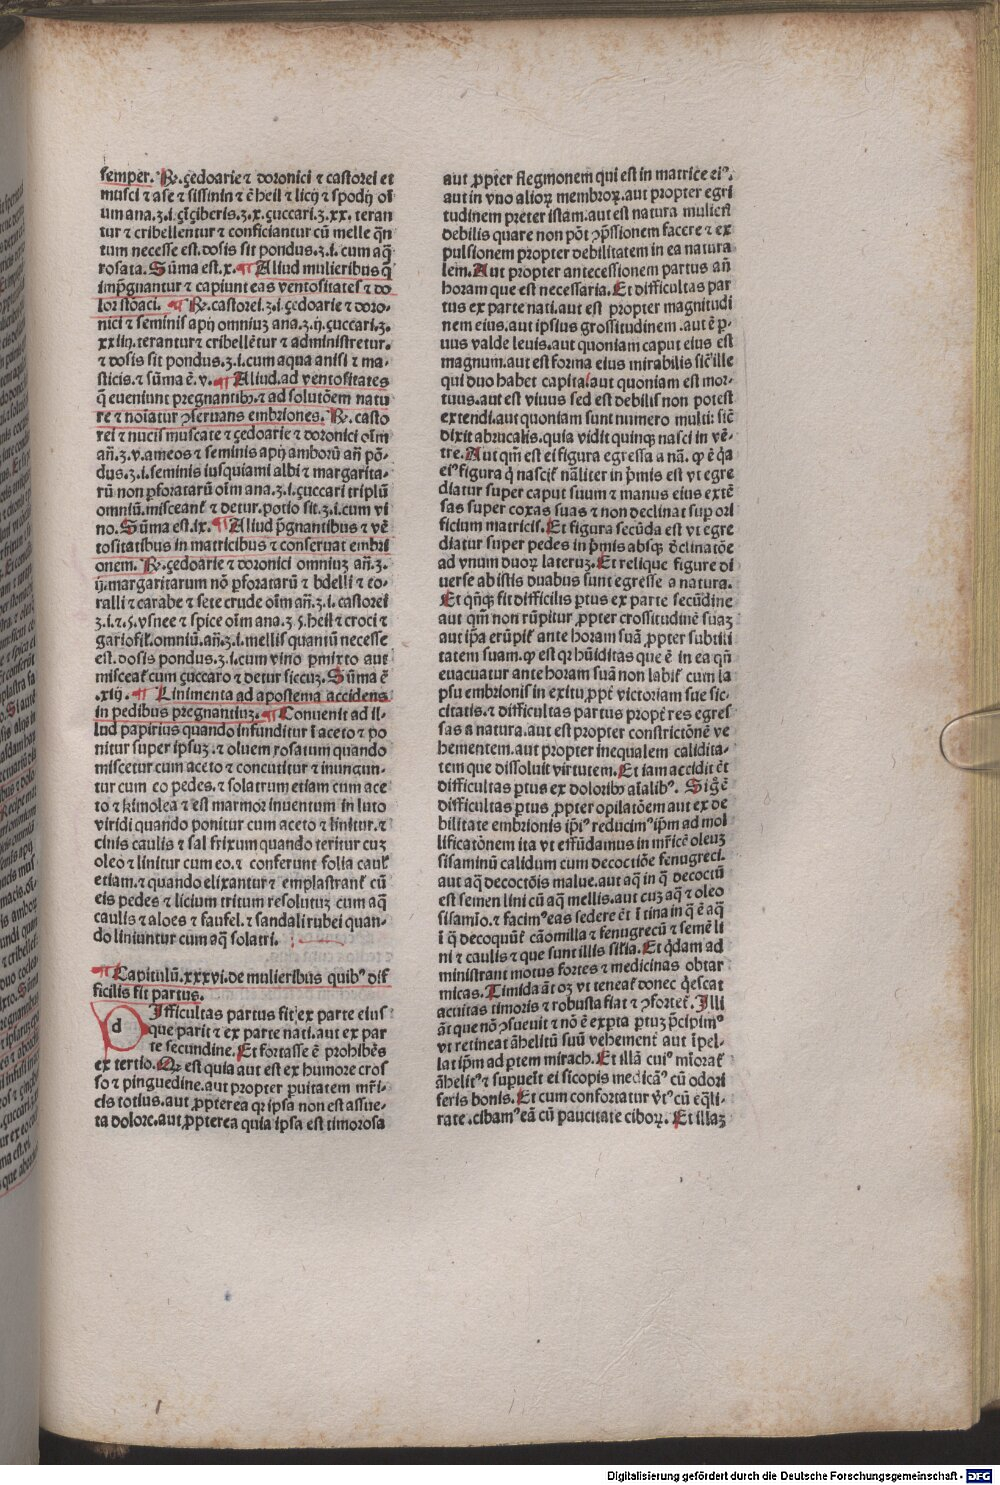 semper. ℞. çedoarie ⁊ doronici ⁊ castorei et
musci ⁊ ase ⁊ sissinin ⁊ c̄heil ⁊ licij ⁊ spodij oī
um ana.ʒ.i. çīçiberis.ʒ.x. çuccari.ʒ.xx. teran
tur ⁊ cribellentur ⁊ conficiantur cū melle qn̄
tum necesse est. dosis sit pondus.ʒ.i. cum aq̄
rosata. Sūma est.x. ¶ Aliud mulieribus q̄
imp̄gnantur ⁊ capiunt eas ventositates ⁊ do
lor stōaci. ¶ ℞. castorei.ʒ.i. çedoarie ⁊ doro-
nici ⁊ seminis apij omniuʒ ana.ʒ.ij. çuccari.ʒ.
xxiiij. terantur ⁊ cribellētur ⁊ administretur.
⁊ dosis sit pondus.ʒ.i. cum aqua anisi ⁊ ma-
sticis. ⁊ sūma ē.v. ¶ Aliud. ad ventositates
q̄ eueniunt pregnantibꝰ. ⁊ ad solutōem natu
re ⁊ noīatur ꝯseruans embriones. ℞. casto
rei ⁊ nucis muscate ⁊ çedoarie ⁊ doronici oīm
añ.ʒ.v. ameos ⁊ seminis apij amborū añ pō-
dus.ʒ.i. seminis iusquiami albi ⁊ margarita-
rū non ꝑforatarū oīm ana.ʒ.i. çuccari triplū
omniū. misceant̄ ⁊ detur. potio sit.ʒ.i. cum vi
no. Sūma est.ix. ¶ Aliud p̄gnantibus ⁊ vē
tositatibus in matricibus ⁊ conseruat embri
onem. ℞. çedoarie ⁊ doronici omniuʒ añ.ʒ.
ij. margaritarum nō ꝑforatarū ⁊ bdelli ⁊ co-
ralli ⁊ carabe ⁊ sete crude oīm añ.ʒ.i. castorei
ʒ.i. ⁊.s. vsnee ⁊ spice oīm ana.ʒ.s. heil ⁊ croci ⁊
gariofil̄. omniū. añ.ʒ.i. mellis quantū necesse
est. dosis pondus.ʒ.i. cum vino ꝑmixto aut
misceat̄ cum çuccaro ⁊ detur siccuʒ. Sūma ē
.xiij. ¶ Linimenta ad apostema accidens
in pedibus pregnantiuʒ. ¶ Conuenit ad il-
lud papirius quando infunditur ī aceto ⁊ po
nitur super ipsuʒ. ⁊ oluem rosatum quando
miscetur cum aceto ⁊ concutitur ⁊ inungun-
tur cum eo pedes. ⁊ solatrum etiam cum ace
to ⁊ kimolea ⁊ est marmor inuentum in luto
viridi quando ponitur cum aceto ⁊ linitur. ⁊
cinis caulis ⁊ sal frixum quando teritur cuʒ
oleo ⁊ linitur cum eo. ⁊ conferunt folia caul̄
etiam. ⁊ quando elixantur ⁊ emplastrant̄ cū
eis pedes ⁊ licium tritum resolutuʒ cum aq̄
caulis ⁊ aloes ⁊ faufel. ⁊ sandali rubei quan-
do liniuntur cum aq̄ solatri.
¶ Capitulū.xxxvi. de mulieribus quibꝰ dif
ficilis fit partus.
d Ifficultas partus fit ex parte eius
que parit ⁊ ex parte nati. aut ex par
te secundine. Et fortasse ē prohibēs
ex tertio. Qꝛ est quia aut est ex humore gros
so ⁊ pinguedine. aut propter ꝑuitatem mr̄i-
cis totius. aut ꝓpterea qꝛ ipsa non est assue-
ta dolore. aut ꝓpterea quia ipsa est timorosa
aut ꝓpter flegmonem qui est in matrice eiꝰ.
aut in vno alioꝝ membroꝝ. aut propter egri
tudinem preter istam. aut est natura muliēs
debilis quare non pōt ꝯp̄ssionem facere ⁊ ex
pulsionem propter debilitatem in ea natura
lem. Aut propter antecessionem partus añ
horam que est necessaria. Et difficultas par
tus ex parte nati. aut est propter magnitudi
nem eius. aut ipsius grossitudinem. aut ē ꝑ-
uus valde leuis. aut quoniam caput eius est
magnum. aut est forma eius mirabilis sic̄ ille
qui duo habet capita. aut quoniam est mor-
tuus. aut est viuus sed est debilis non potest
extendi. aut quoniam sunt numero multi: sic̄
dixit abrucalis. quia vidit quinqꝫ nasci in vē-
tre. Aut qm̄ est ei figura egressa a nā. qꝫ ē q̄a
eiꝰ figura q̄ nascit̄ nāliter in p̄mis est vt egre
diatur super caput suum ⁊ manus eius extē
sas super coxas suas ⁊ non declinat sup ori
ficium matricis. Et figura secūda est vt egre
diatur super pedes in p̄mis absqꝫ d̄clinatōe
ad vnum duoꝝ lateruʒ. Et relique figure di
uerse ab istis duabus sunt egresse a natura.
Et qn̄qꝫ fit difficilis ꝑtus ex parte secūdine
aut qm̄ non rūpitur ꝓpter crossitudinē suaʒ
aut ip̄a erūpit̄ ante horam suā ꝓpter subtili
tatem suam. qꝫ est qꝛ hūiditas que ē in ea qn̄
euacuatur ante horam suā non labit̄ cum la
psu embrionis in exitu ꝓpt̄ victoriam sue sic-
citatis. ⁊ difficultas partus propt̄ res egres
sas a natura. aut est propter constrictōnē ve
hementem. aut propter inequalem calidita-
tem que dissoluit virtutem. Et iam accidit ēt
difficultas ꝑtus ex doloribꝰ aīalibꝰ. Sig ē
difficultas ꝑtus ꝓpter opilatōem aut ex de
bilitate embrionis ip̄i reducimꝰ ip̄m ad mol
lificatōnem ita vt effūdamus in mr̄icē oleuʒ
sisaminū calidum cum decoctiōe fenugreci.
aut aq̄ decoctōis malue. aut aq̄ in q̄ decoctū
est semen lini cū aq̄ mellis. aut cuʒ aq̄ ⁊ oleo
sisamīo. ⁊ facimꝰ eas sedere ēt ī tina in q̄ ē aq̄
ī q̄ decoquūt̄ cāomilla ⁊ fenugrecū ⁊ semē li
ni ⁊ caulis ⁊ que sunt illis silīa. Et q̄dam ad
ministrant motus fortes ⁊ medicinas obtar
micas. Timida āt oʒ vt teneat̄ donec q̄escat
acuitas timoris ⁊ robusta fiat ⁊ ꝯfortet̄. Illi
āt que nō ꝯsueuit ⁊ nō ē expta ꝑtuʒ p̄cipimꝰ
vt retineat āhelitū suū vehement̄ aut īpel-
lat ip̄m ad ꝑtem mirach. Et illā cuiꝰ mīorat̄
āhelitꝰ ⁊ supueīt ei sicopis medicāꝰ cū odori
feris bonis. Et cum confortatur v̄tꝰ cū eq̄li-
rate. cibamꝰ eā cū paucitate ciboꝝ. Et illaʒ
Digitalisierung gefördert durch die Deutsche Forschungsgemeinschaft - DFG